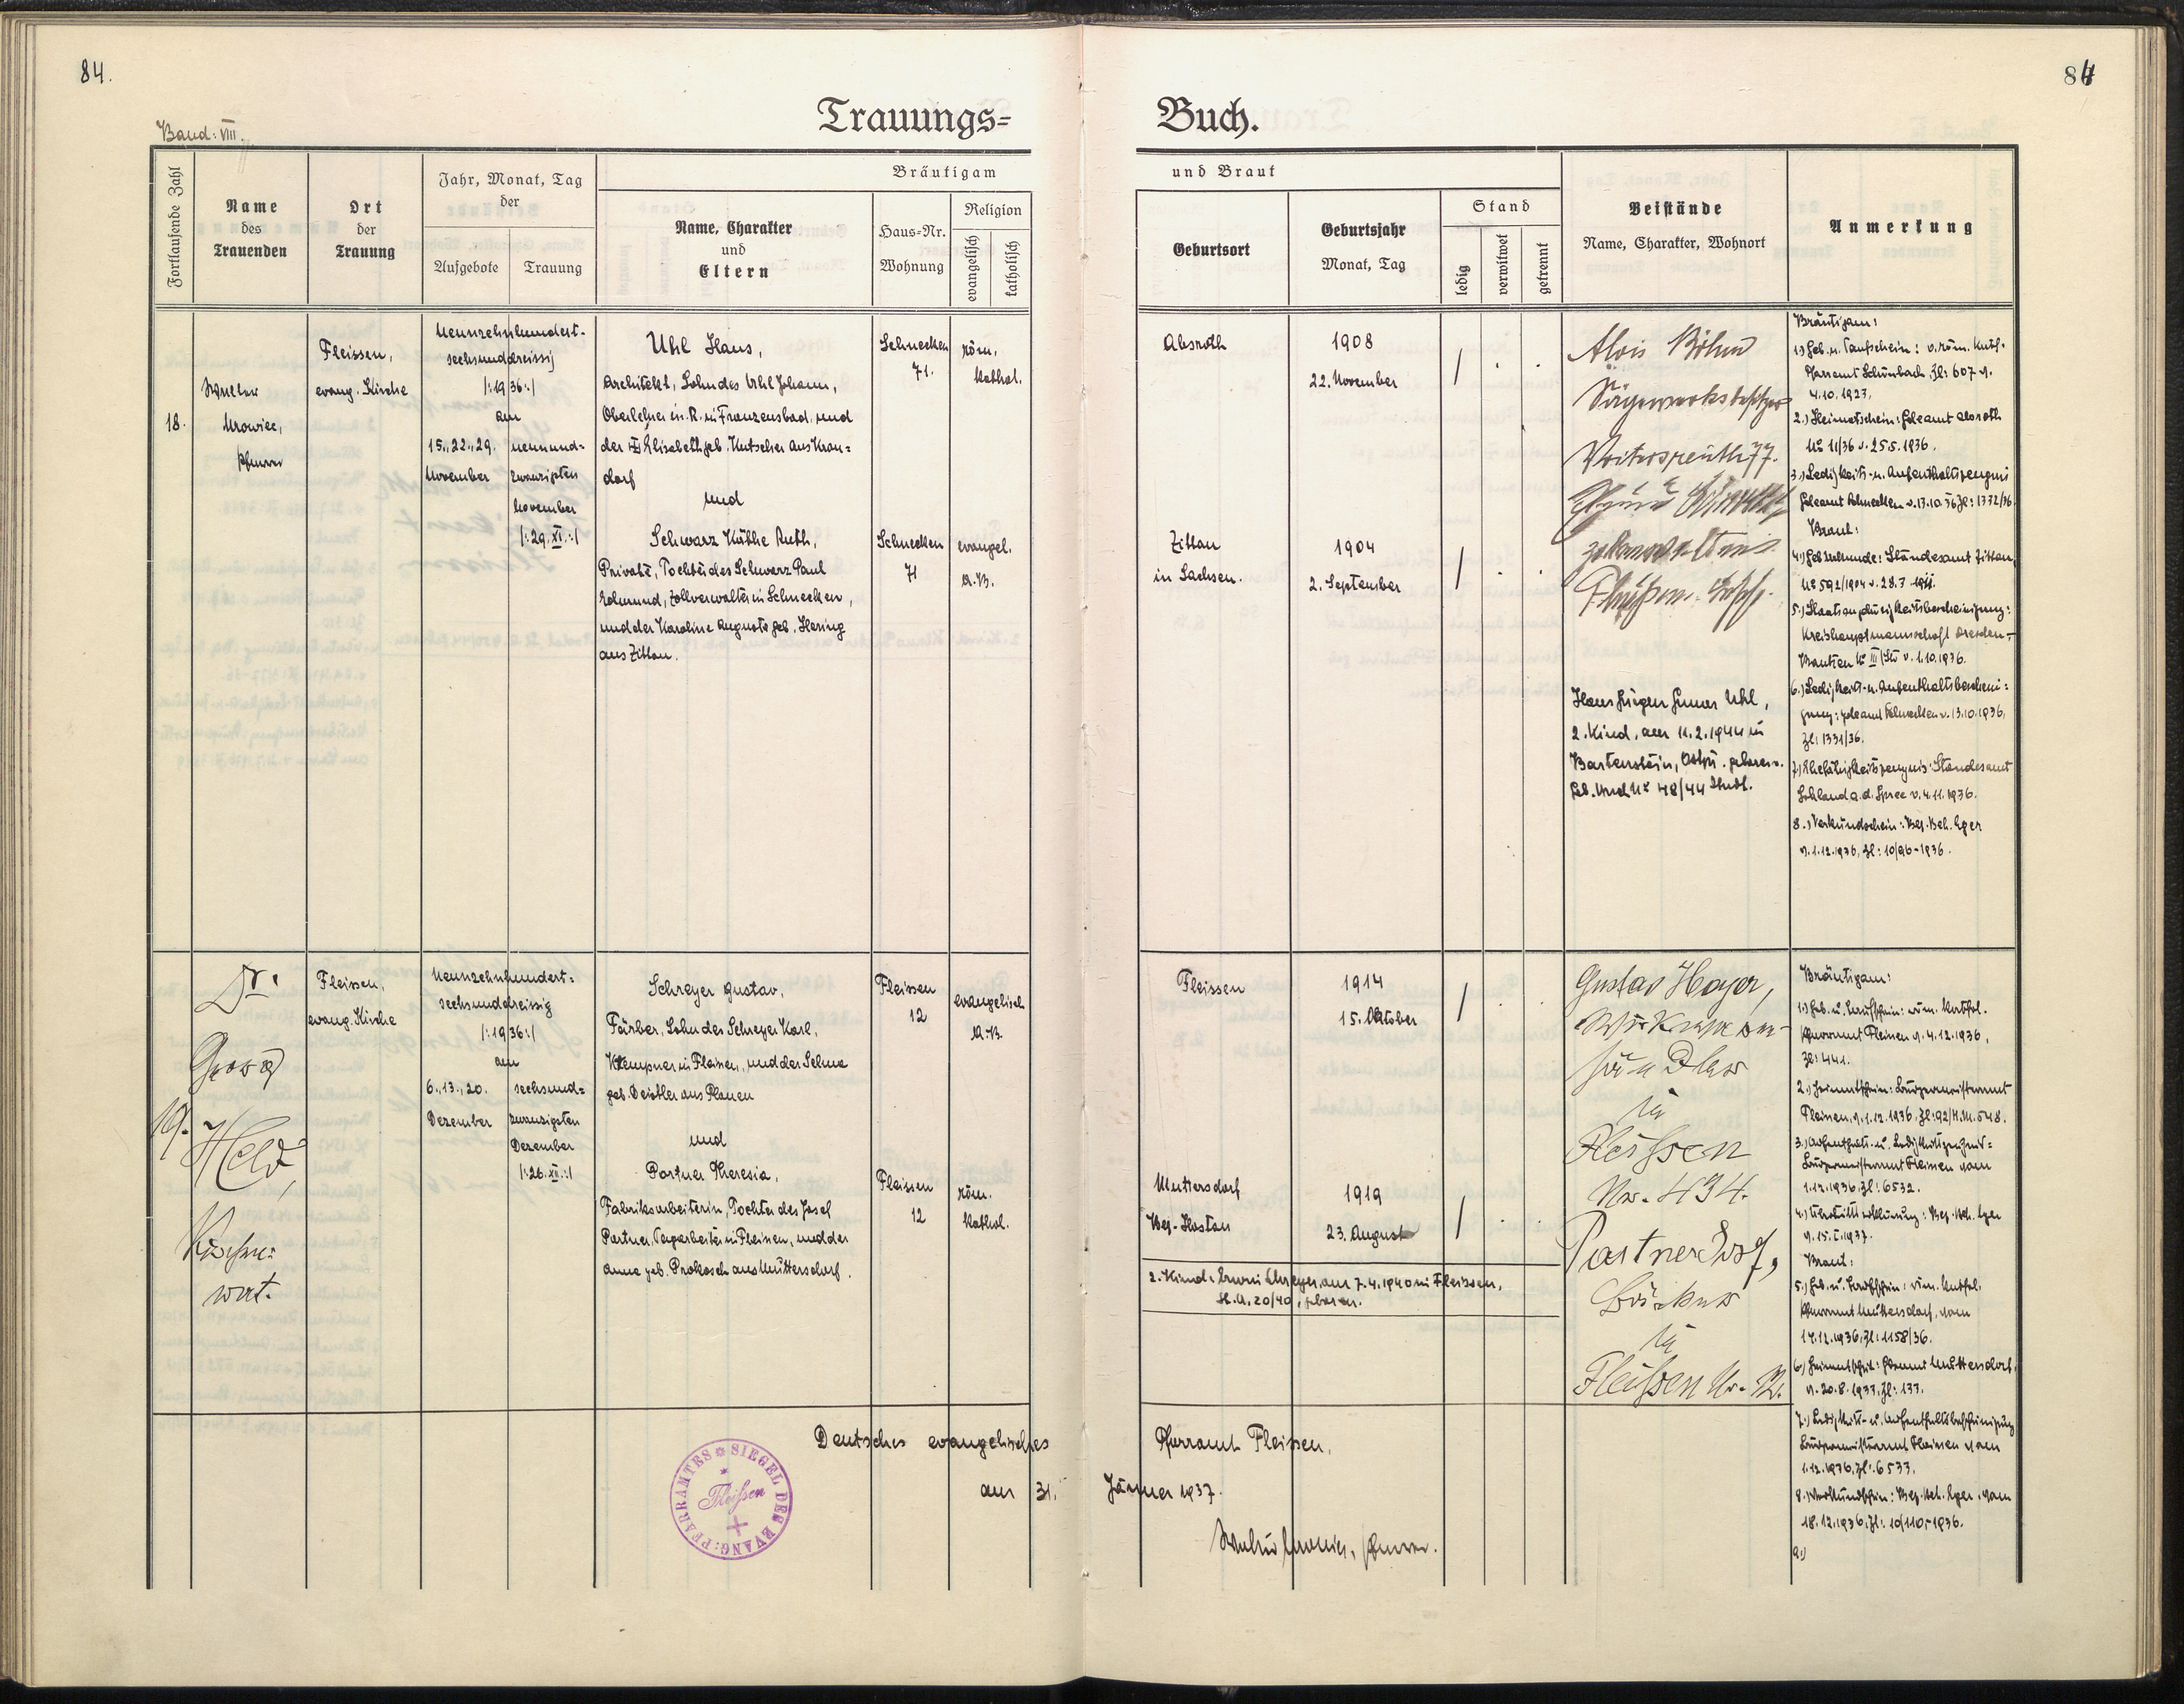 84.
84
Trauungs= Buch.
Band: VIII.
Fortlaufende Zahl
Name
des
Trauenden
Ort
der
Trauung
Jahr, Monat, Tag
der
Aufgebote
Trauung
Bräutigam
und Braut
Name, Charakter
und
Eltern
Haus=Nr.
Wohnung
Religion
evangelisch
katholisch
Geburtsort
Geburtsjahr
Monat, Tag
Stand
ledig
verwitwet
getrennt
Beistände
Name, Charakter, Wohnort
Anmerkung
18.
Walter
Urowiec,
Pfarrer
Fleissen,
evang. Kirche
Neunzehnhundert-
sechsunddreissig
/:1936:/
am
15., 22., 29.
November
neunund=
zwanzigsten
November
/:29. XI.:/
Uhl Hans,
Architekt, Sohn des Uhl Johann,
Oberlehrer in R. in Franzensbad, und
der Elisabeth geb. Kutscher aus Kron=
dorf
und
Schwarz Käthe Ruth,
Private, Tochter des Schwarz Paul
Edmund, Zollverwalter in Schnecken,
und der Karoline Auguste geb. Hering
aus Zittau.
Schnecken
71.
röm.
kathol.
Schnecken
71
evangel.
A.B.
Absroth
1908
22. November
/ . .
Zittau
in Sachsen.
1904
2. September
/ . .
Alois Böhm
Sägewerksbesitzer
Voitersreuth 77.
Fleißen.
Hans Jürgen Gunar Uhl,
2. Kind, am 11.2.1944 in
Bartenstein, Ostpr. geboren.
Geb. Urk. No 48/44
Bräutigam:
1.) Geb. u. Taufschein: v. röm. kath.
Pfarramt Schönbach, Zl: 607 v.
4.10.1927.
2.) Heimatschein: Gdeamt Absroth
No 11/36 v. 25.5.1936.
3.) Ledigkeits- u. Aufenthaltszeugnis
Gdeamt Schnecken v. 13.10.36 Zl: 1332/36.
Braut:
4.) Geb. urkunde: Standesamt Zittau,
No 592/1904 v. 28.7.
5.) Staatsangehörigkeitsbescheinigung:
Kreishauptmannschaft Dresden-
Bautzen No III v. 1.10.1936.
6.) Ledigkeits- u. Aufenthaltsbeschei=
gung: Gdeamt Schnecken v. 13.10.1936,
Zl: 1331/36.
7.) Ehefähigkeitszeugnis: Standesamt
Sohland a. d. Spree v. 4.11.1936.
8.) Verkündschein: Bez. Beh. Eger
v. 1.12.1936, Zl: 10/96-1936.
19.
Dr.
Held,
Fleissen,
evang. Kirche
Neunzehnhundert=
sechsunddreissig
/:1936:/
am
6., 13., 20.
Dezember
sechsund=
zwanzigsten
Dezember
/:26. XII.:/
Schreyer Gustav,
Färber, Sohn des Schreyer Karl,
Klempner in Fleissen, und der Selma
geb. Deistler aus Plauen
und
Partner Theresia,
Fabriksarbeiterin, Tochter des Josef
Partner, Tagarbeiter in Fleissen, und der
Anna geb. Prokosch aus Muttersdorf.
Fleissen
12
evangelisch
A.B.
Fleissen
12
röm.
kathol.
Fleissen
1914
15. Oktober
/ . .
Muttersdorf
Bez. Hostau
1919
23. August
/ . .
2. Kind: Erwin Schreyer, am 7.4.1940 in Fleissen,
St. A. 20/40, geboren.
Gustav Hoyer,
in
Fleißen
Nr. 434.
Partner Josef,
in
Fleißen Nr. 12.
Bräutigam:
1.) Geb. u. Taufschein: röm. kathol.
Pfarramt Fleissen v. 4.12.1936,
Zl: 441.
2.) Heimatschein: Bürgermeisteramt
Fleissen, v. 1.12.1936, Zl: 92/H.M. 548.
3.) Aufenthalts- u. Ledigkeitszeugnis=
Bürgermeisteramt Fleissen vom
1.12.1936, Zl: 6532.
4.) Übertrittserklärung: Bez. Beh. Eger
v. 15. I. 1937.
Braut:
5.) Geb. u. Taufschein: röm. kathol.
Pfarramt Muttersdorf, vom
14.12.1936, Zl: 1158/36.
6.) Heimatschein: Gdeamt Muttersdorf,
v. 20.8.1933, Zl: 133.
7.) Ledigkeits- u. Aufenthaltsbescheinigung
Bürgermeisteramt Fleissen vom
1.12.1936, Zl: 6533.
8.) Verkündschein: Bez. Beh. Eger, vom
18.12.1936, Zl: 10/110,-1936.
9.)
Deutsches evangelisches Pfarramt Fleissen,
am 31. Jänner 1937.
Walter Urowiec, Pfarrer.
SIEGEL DER EVANG: PFARRAMTES
Fleißen